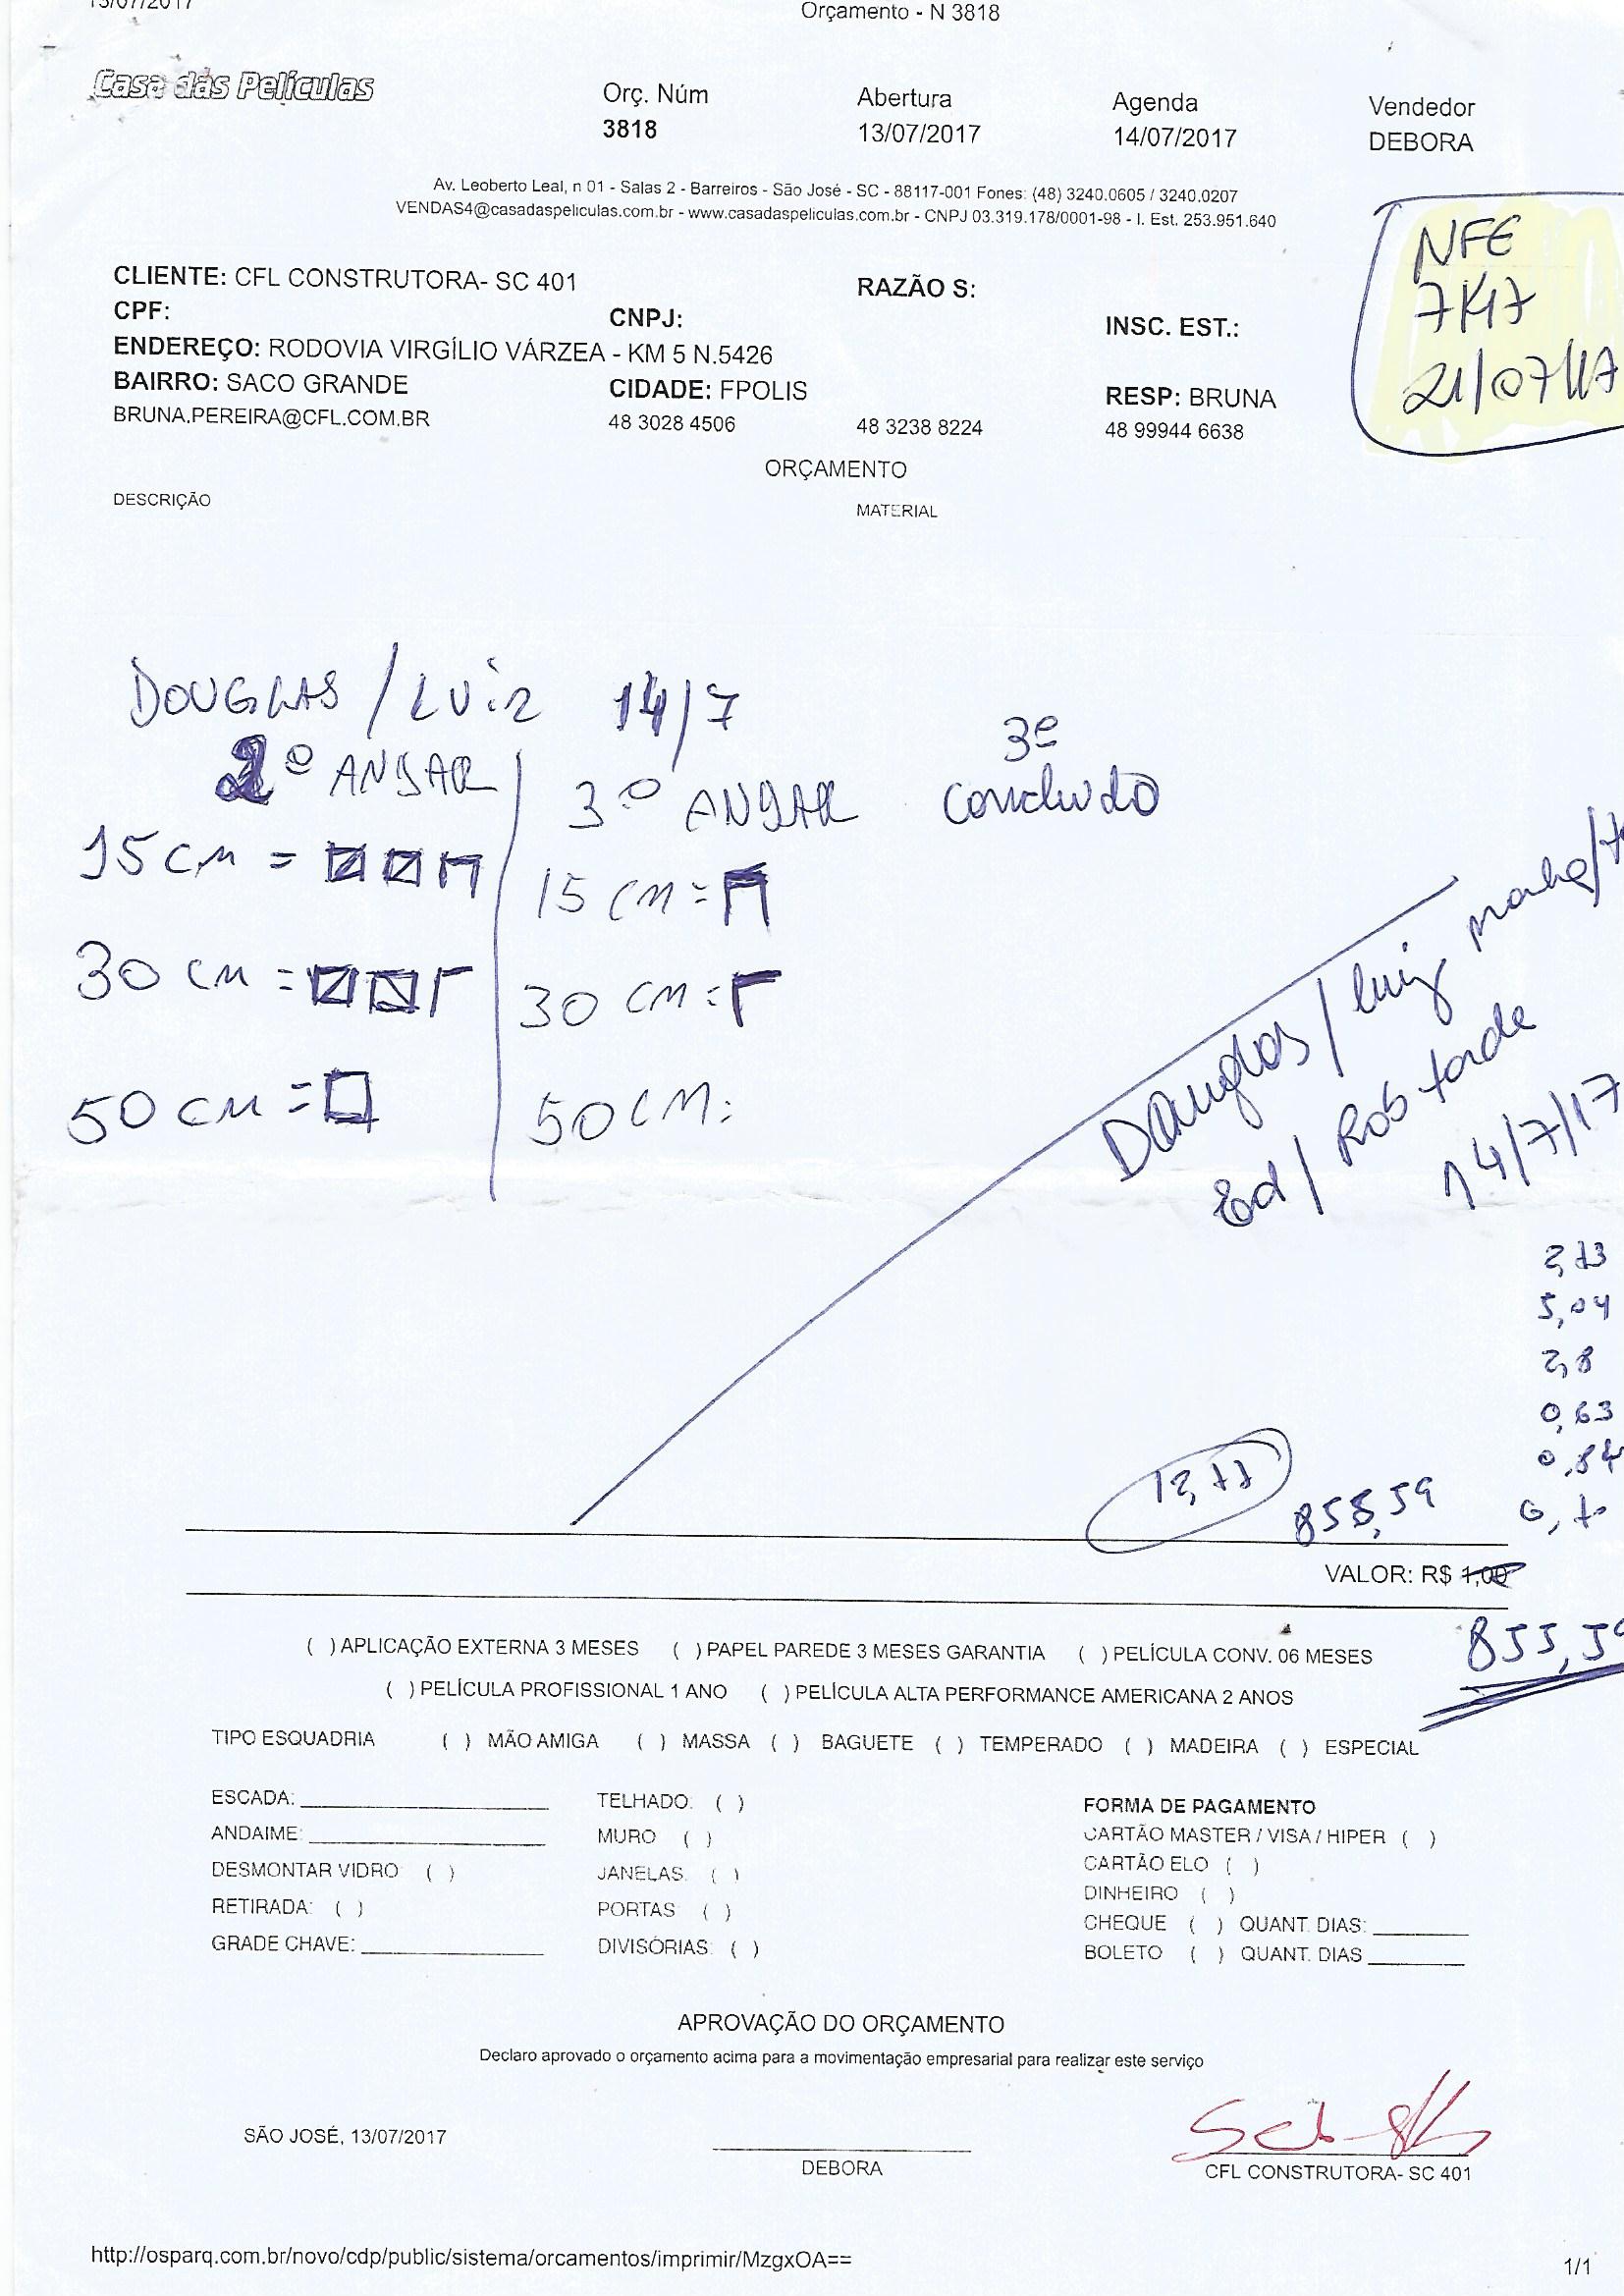 13/07/2017
Orçamento - N 3818
Casa das Películas
Orç. Núm
3818
Abertura
13/07/2017
Agenda
14/07/2017
Vendedor
DEBORA
Av. Leoberto Leal, n 01 - Salas 2 - Barreiros - São José - SC - 88117-001 Fones: (48) 3240.0605 / 3240.0207
VENDAS4@casadaspeliculas.com.br - www.casadaspeliculas.com.br - CNPJ 03.319.178/0001-98 - I. Est. 253.951.640
NFE
21/07/17
CLIENTE: CFL CONSTRUTORA- SC 401
RAZÃO S:
CPF:
CNPJ:
INSC. EST.:
ENDEREÇO: RODOVIA VIRGÍLIO VÁRZEA - KM 5 N.5426
BAIRRO: SACO GRANDE
CIDADE: FPOLIS
RESP: BRUNA
BRUNA.PEREIRA@CFL.COM.BR
48 3028 4506
48 3238 8224
48 99944 6638
ORÇAMENTO
DESCRIÇÃO
MATERIAL
DOUGLAS / LUIZ 14/7
2º ANDAR
3º ANDAR
3º
concluido
15 CM =
15 CM =
30 CM =
30 CM =
50 CM =
50 CM:
Douglas / luiz manha/
Ed / Rob tarde
14/7/17
5,04
2,8
0,63
0,84
0,7
855,59
VALOR: R$ 1,00
( ) APLICAÇÃO EXTERNA 3 MESES ( ) PAPEL PAREDE 3 MESES GARANTIA ( ) PELÍCULA CONV. 06 MESES
855,59
( ) PELÍCULA PROFISSIONAL 1 ANO ( ) PELÍCULA ALTA PERFORMANCE AMERICANA 2 ANOS
TIPO ESQUADRIA ( ) MÃO AMIGA ( ) MASSA ( ) BAGUETE ( ) TEMPERADO ( ) MADEIRA ( ) ESPECIAL
ESCADA:
TELHADO: ( )
FORMA DE PAGAMENTO
ANDAIME:
MURO ( )
CARTÃO MASTER / VISA / HIPER ( )
DESMONTAR VIDRO ( )
JANELAS. ( )
CARTÃO ELO ( )
DINHEIRO ( )
RETIRADA: ( )
PORTAS ( )
CHEQUE ( ) QUANT. DIAS:
GRADE CHAVE:
DIVISÓRIAS: ( )
BOLETO ( ) QUANT. DIAS
APROVAÇÃO DO ORÇAMENTO
Declaro aprovado o orçamento acima para a movimentação empresarial para realizar este serviço
SÃO JOSÉ, 13/07/2017
DEBORA
CFL CONSTRUTORA- SC 401
http://osparq.com.br/novo/cdp/public/sistema/orcamentos/imprimir/MzgxOA==
1/1